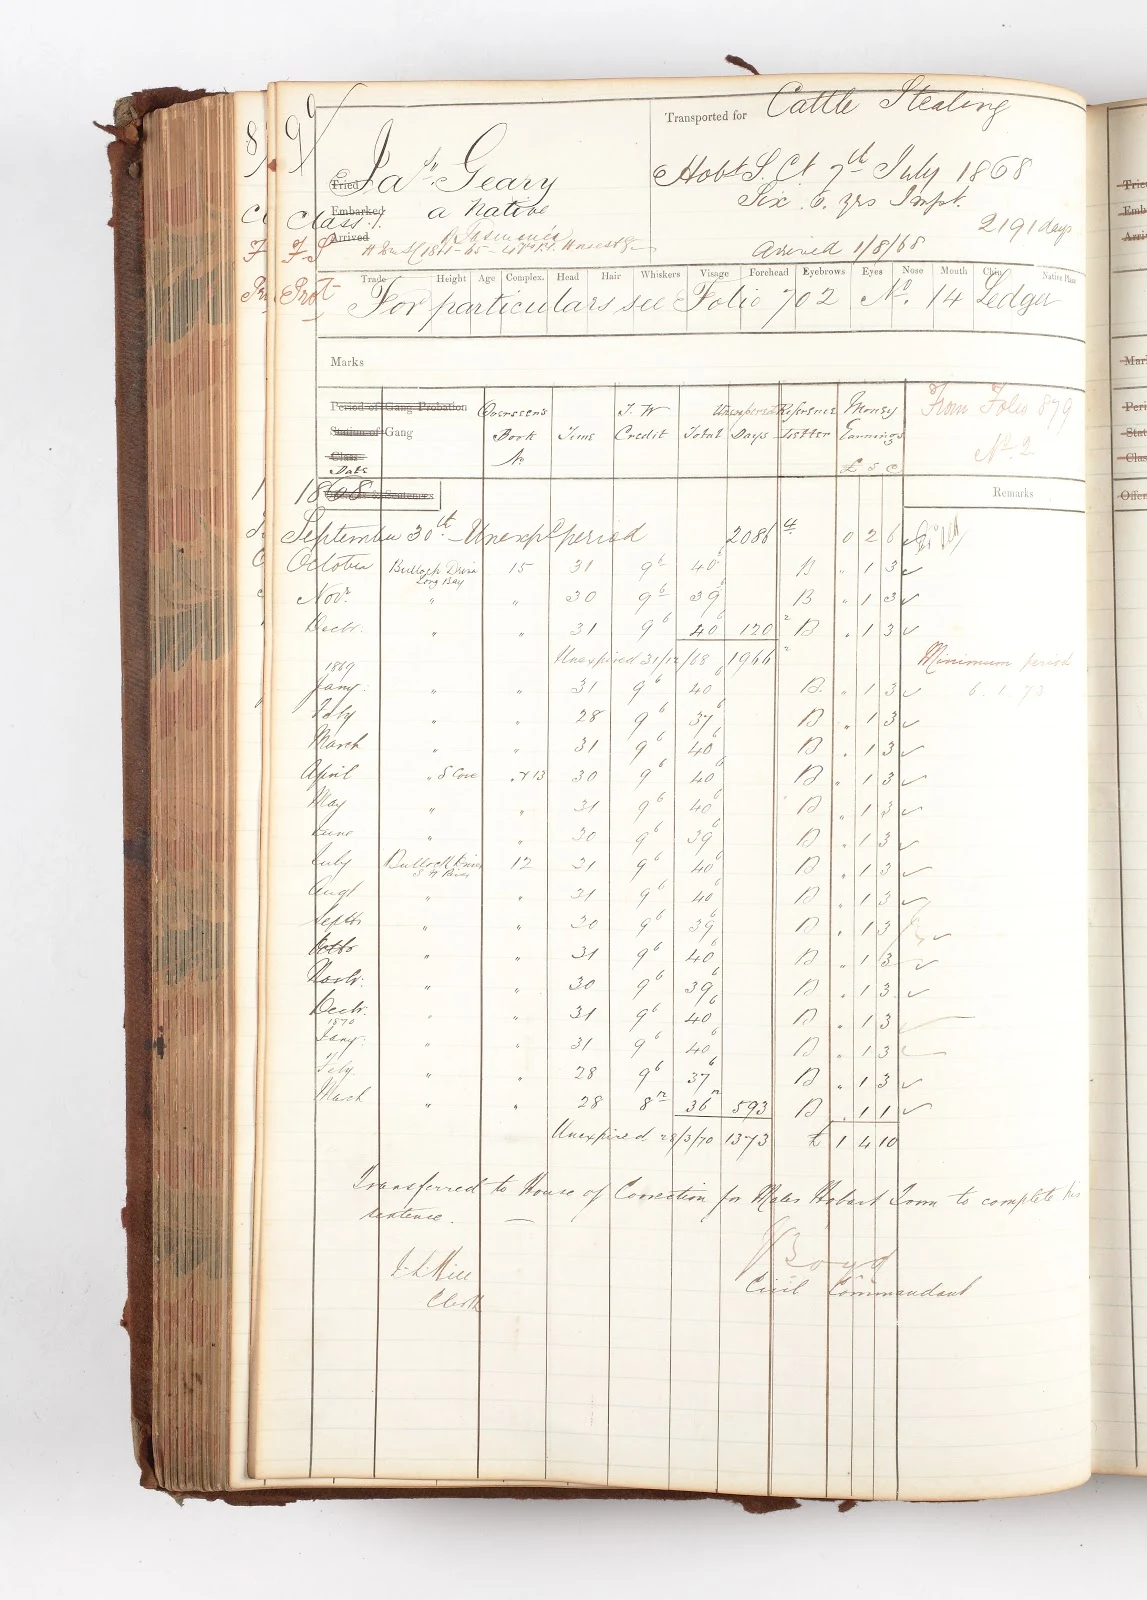 8 99
Transported for Cattle Stealing
Tried Jas. Geary
Embarked a Native
Class 1.
Arrived Tasmania
Hobt S. Ct 7th July 1868
Six .6. yrs Impt.
2191 days
arrived 1/8/68
F F S
Pr Prot
Trade Height Age Complex. Head Hair Whiskers Visage Forehead Eyebrows Eyes Nose Mouth Chin Native Place
For particulars see Folio 702 No. 14 Ledger
Marks
Period of Gang Probation
Station of Gang
Class
Date
Overseers Book No
Time
T. W Credit
Total
Unexpired Days
Reference Letter
Money Earnings £ S
From Folio 879
No. 2
1868
Offences & Sentences
Remarks
September 30th Unexpd period 2086 4 0 2 6
October Bullock Driver Long Bay 15 31 9 6 40 6 B " 1 3
Novr. " " 30 9 6 39 6 B " 1 3
Decbr. " " 31 9 6 40 6 120 2 B " 1 3
Unexpired 31/12/68 1966 2
Minimum period
6.1.73
1869
Jany. " " 31 9 6 40 6 B. " 1 3
Feby " " 28 9 6 37 6 B " 1 3
March " " 31 9 6 40 6 B " 1 3
April " S Cove " & 13 30 9 6 40 6 B " 1 3
May " " 31 9 6 40 6 B " 1 3
June " " 30 9 6 39 6 B " 1 3
July Bullock Driver 12 31 9 6 40 6 B " 1 3
Augt " " 31 9 6 40 6 B " 1 3
Septbr " " 30 9 6 39 6 B " 1 3
Octbr " " 31 9 6 40 6 B " 1 3
Novbr. " " 30 9 6 39 6 B " 1 3
Decbr. " " 31 9 6 40 6 B " 1 3
1870
Jany. " " 31 9 6 40 6 B " 1 3
Feby " " 28 9 6 37 6 B " 1 3
March " " 28 8 36 593 B " 1 1
Unexpired 28/3/70 1373 £ 1 4 10
Transferred to House of Correction for Males Hobart Town to complete his
sentence.
Boyd
Clerk
Civil Commandant